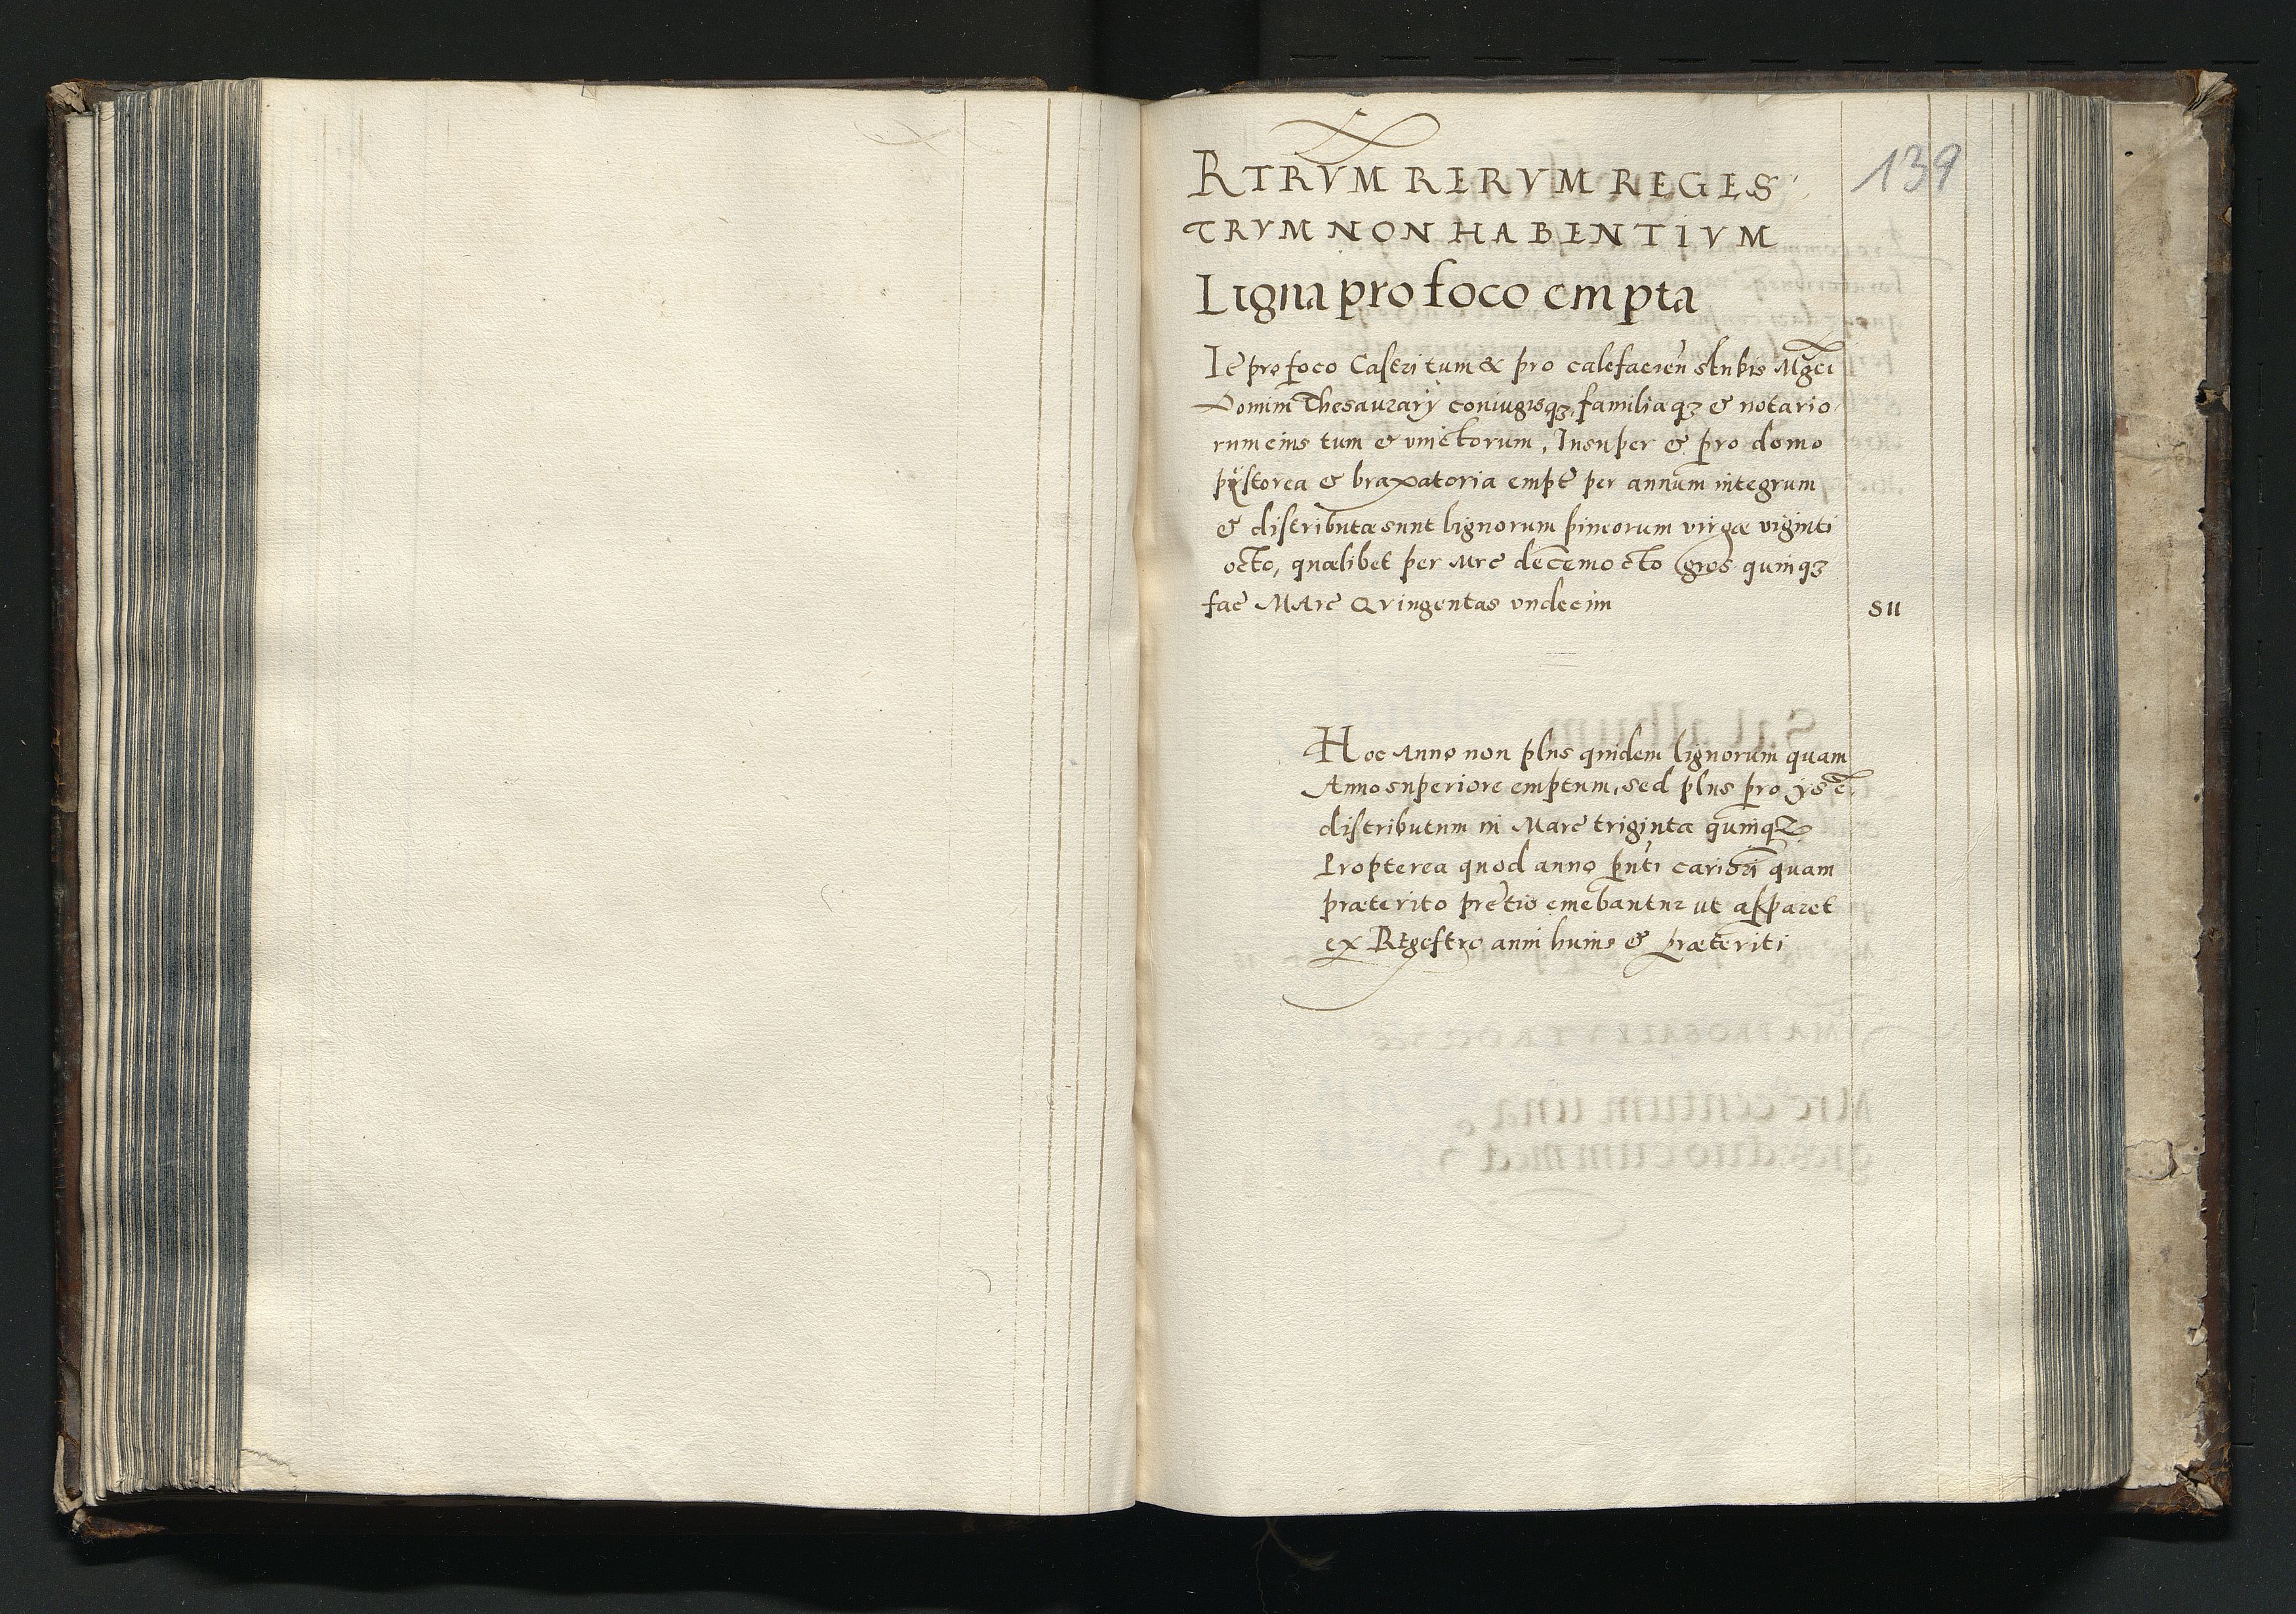 139
RTRVM RERVM REGES
TRVM NON HABENTIVM
Ligna pro foco empta
Ic̄ pro foco Castri tum & pro calefacien̄ stubis Mgc̄i
Domini Thesaurarÿ coniugisqꝫ, familiaqꝫ & notario
rum eius tum & vinctorum, Insuper & pro domo
pÿstorea & braxatoria empt̄ per annum integrum
& distributæ sunt lignorum pineorum virgæ viginti
octo, quælibet per Mrc̄ decemocto gros quinqꝫ
fac̄ MArc̄ Qvingentas vndecim 511
Hoc Anno non plus quidem lignorum quam
Anno superiore emptum, sed plus pro ÿs ē
distributum in Marc̄ triginta quinqꝫ
Propterea quod anno pn̄ti cariori quam
præterito prētio emebantur ut apparet
ex Regestro anni huius & præteriti